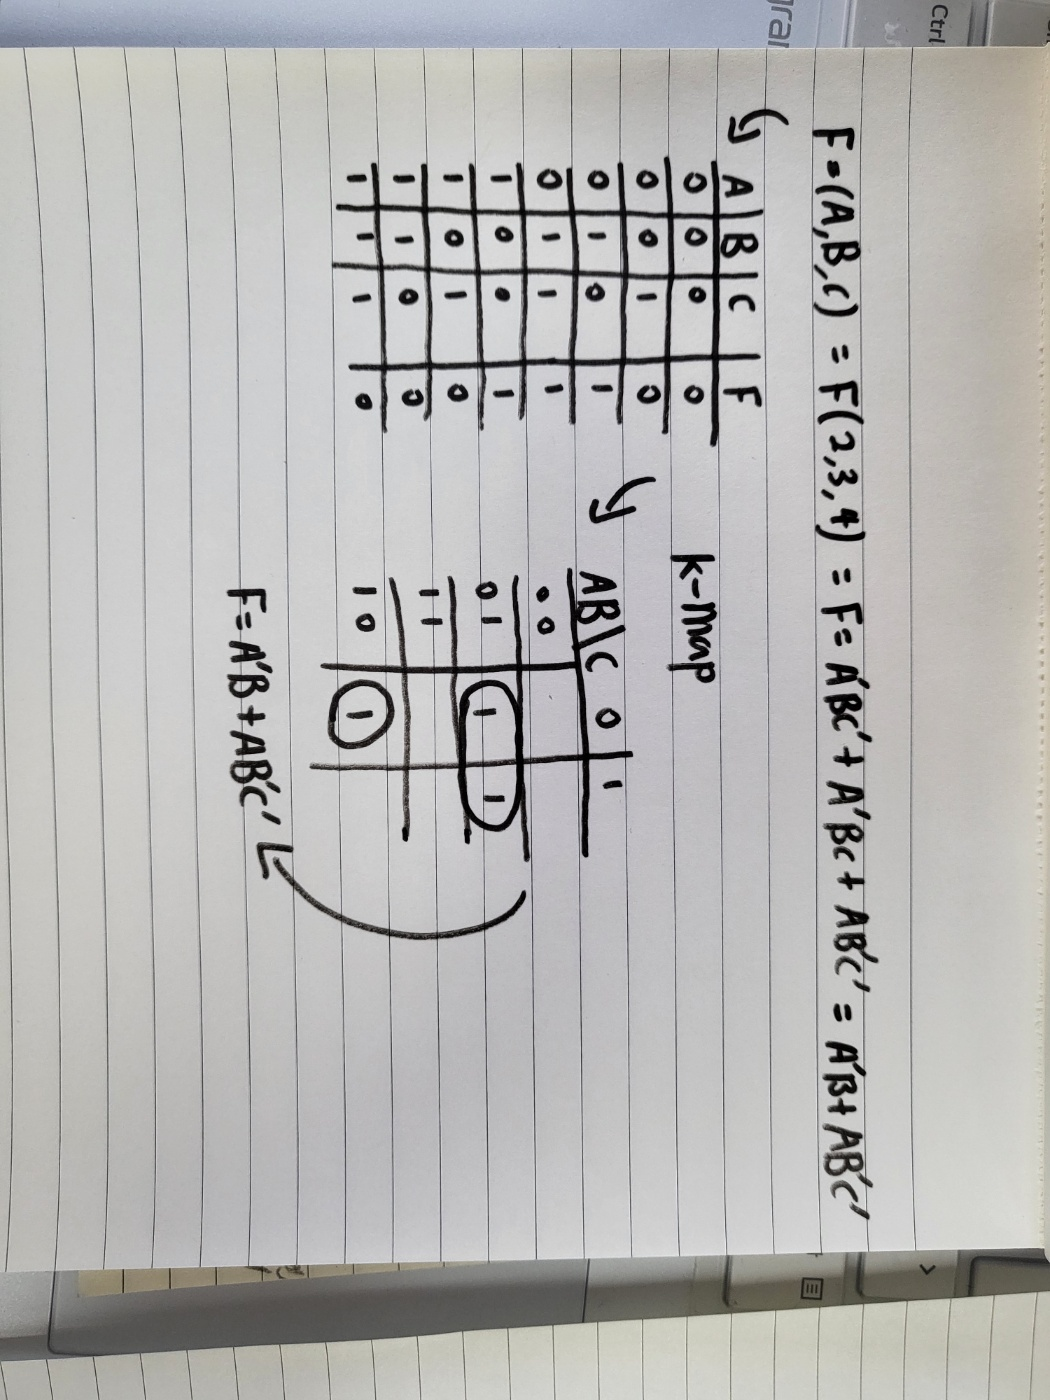 F=(A,B,C) = F(2,3,4) = F= A'BC' + A'BC + AB'C' = A'B+AB'C'
A|B|C|F
0 0 0 0
0 0 1 0
0 1 0 1
0 1 1 1
1 0 0 1
1 0 1 0
1 1 0 0
1 1 1 0
k-map
AB\C 0 1
00
01 1 1
11
10 1
F= A'B+AB'C'
gram
Ctrl